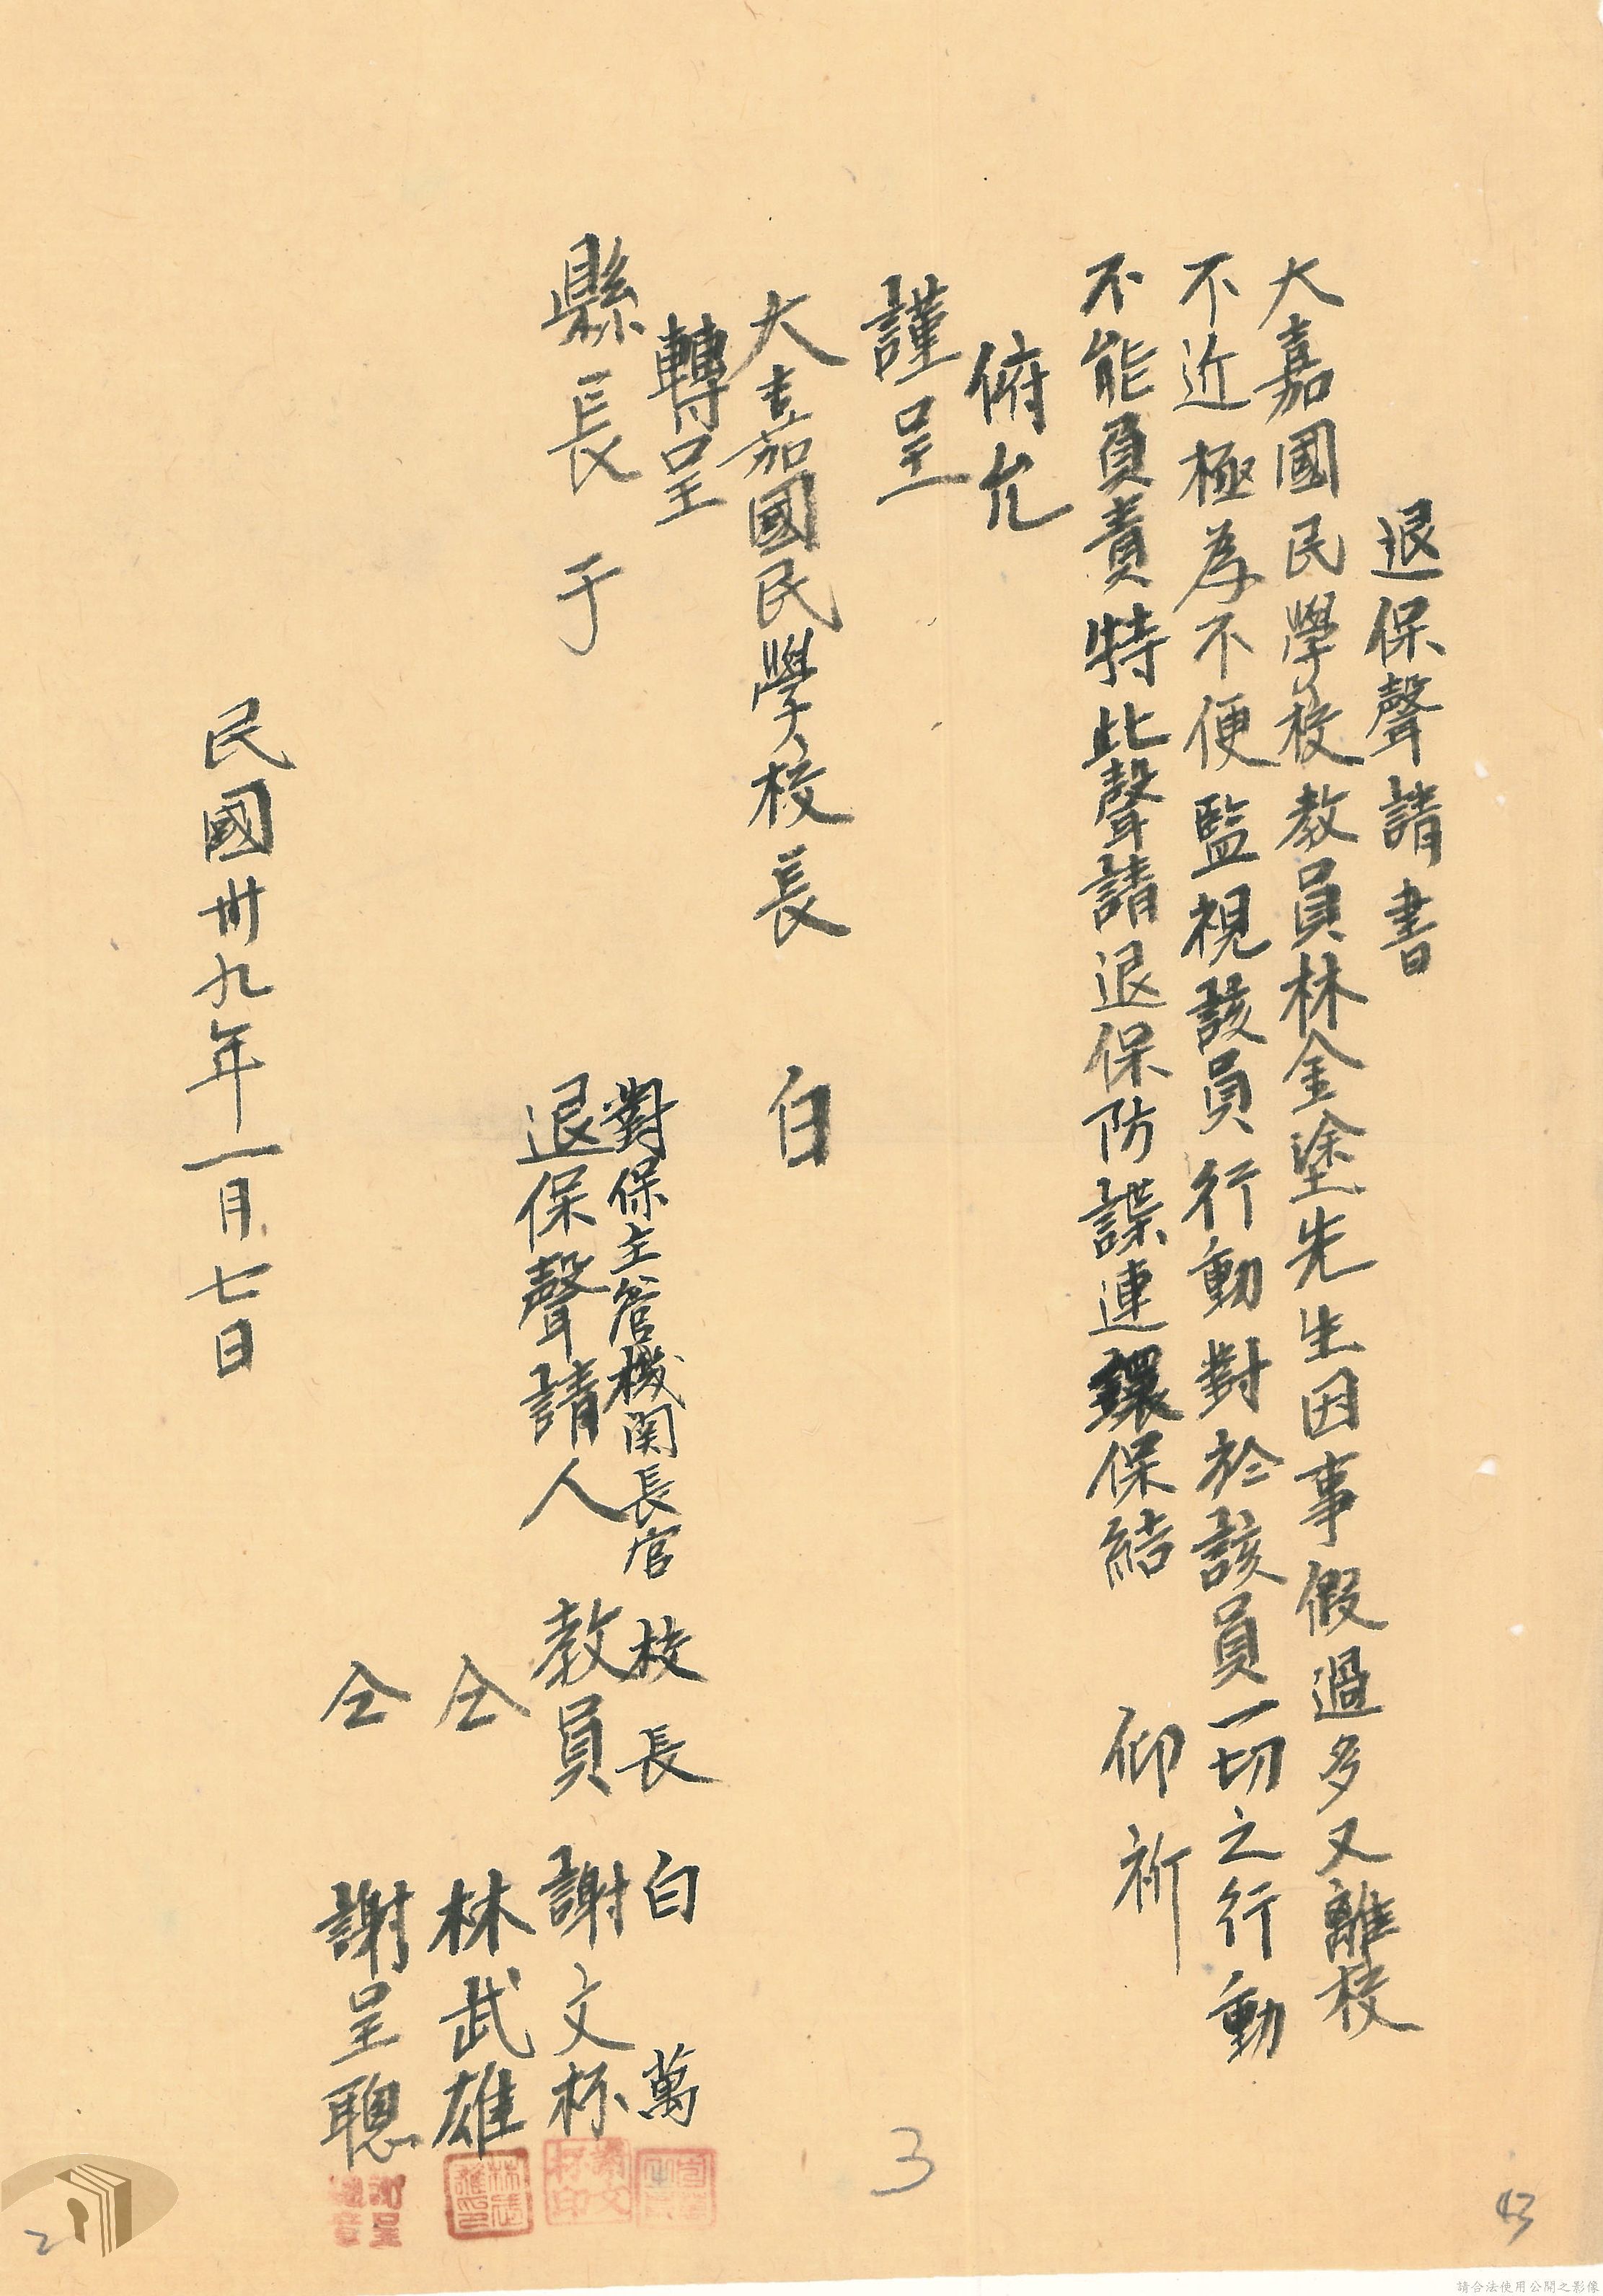 退保聲請書
大嘉國民學校教員林金塗先生因事假過多又離校
不近極為不便監視該員行動對於該員一切之行動
不能負責特此聲請退保防諜連環保結　仰祈
俯允
謹呈
大嘉國民學校長　白
轉呈
縣長　于
對保主管機関長官　校長　白萬
退保聲請人　教員　謝文杯
仝　林武雄
仝　謝呈聰
民國卅九年一月七日
3
43
2
請合法使用公開之影像